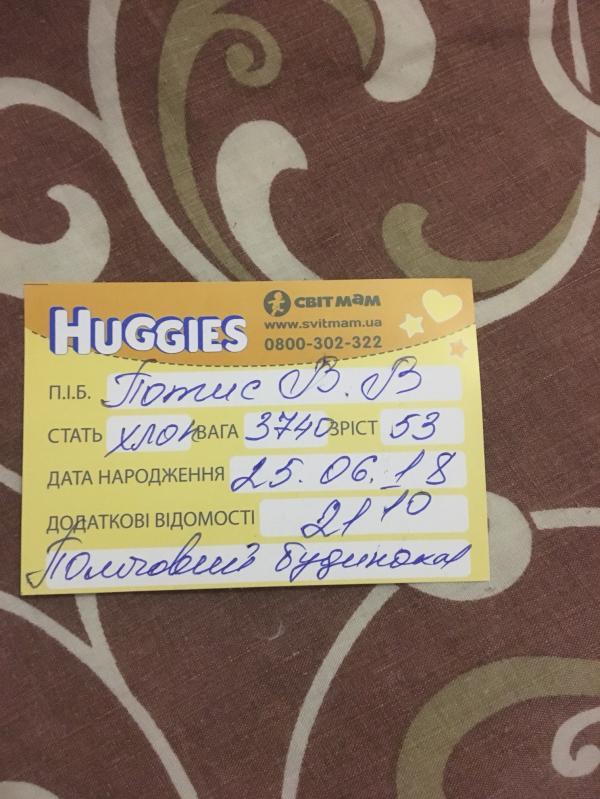 HUGGIES
СВІТ МАМ
www.svitmam.ua
0800-302-322
П.І.Б. Потис В. В
СТАТЬ хлоп ВАГА 3740 ЗРІСТ 53
ДАТА НАРОДЖЕННЯ 25.06.18
ДОДАТКОВІ ВІДОМОСТІ 21 10
будинок